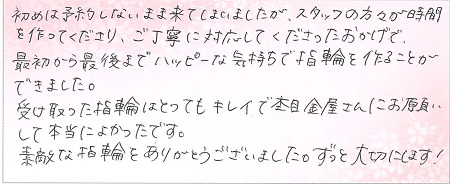 初めは予約しないまま来てしまいましたが、スタッフの方々が時間
を作ってくださり、ご丁寧に対応してくださったおかげで、
最初から最後までハッピーな気持ちで指輪を作ることが
できました。
受け取った指輪はとってもキレイで杢目金屋さんにお願い
して本当によかったです。
素敵な指輪をありがとうございました。ずっと大切にします!